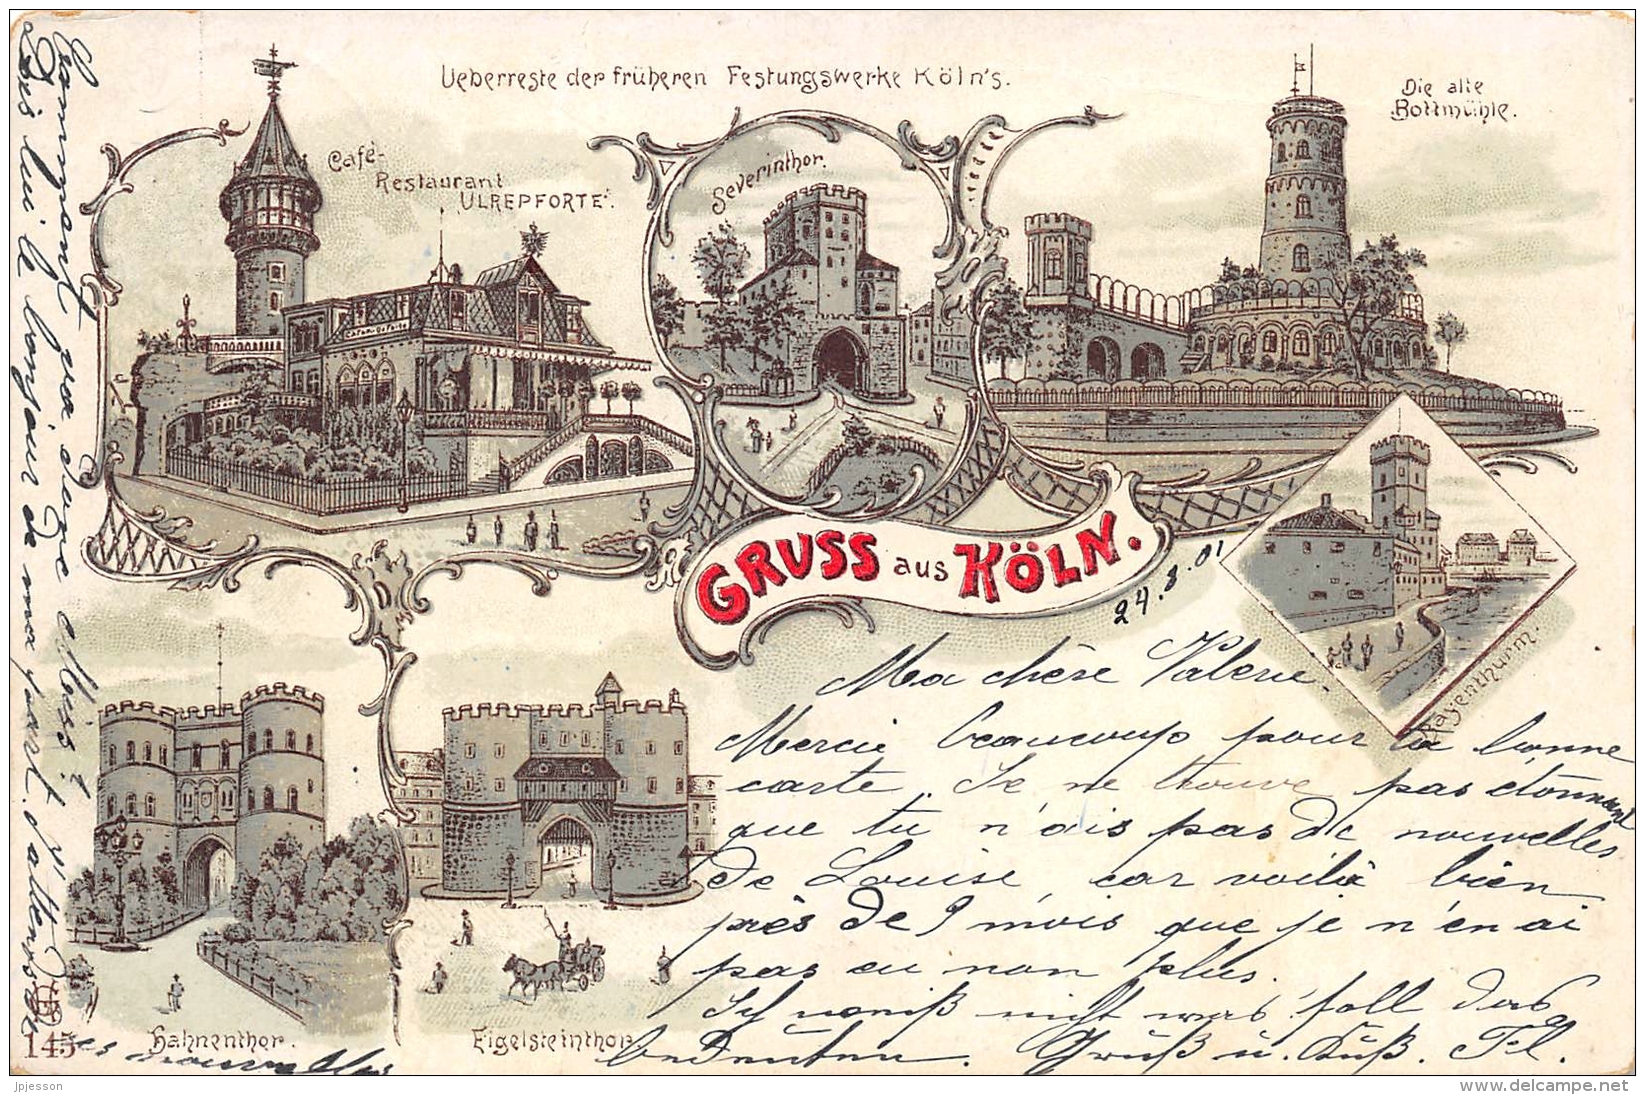 Ueberreste der früheren Festungswerke Köln's.
Café-
Restaurant
"ULREPFORTE".
Severinthor.
Die alte
Bottmühle.
GRUSS aus KÖLN.
24.8.01
Bayenthurm.
Hahnenthor.
Eigelsteinthor.
145
Ma chère Valerie.
Mercie beaucoup pour ta bonne
carte. Je ne trouve pas étonnant
que tu n'ais pas de nouvelles
de Louise, car voilà bien
près de 9 mois que je n'en ai
pas eu non plus.
Ich weiß nicht was soll das
bedeuten. Gruß u. Kuß. Fl.
Comment va dame Meis? 
Dis lui le bonjour de ma part. J'attends
tes nouvelles
jpjesson
delcampe.net